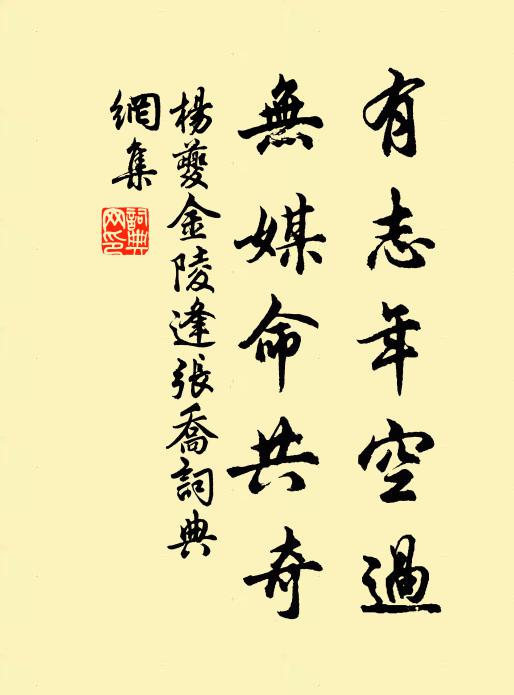 有志年空過
無媒命共奇
楊夔金陵逢張喬詞典
網集
詞典
网印